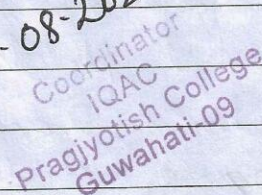 -08-202
Coordinator
IQAC
Pragjyotish College
Guwahati-09